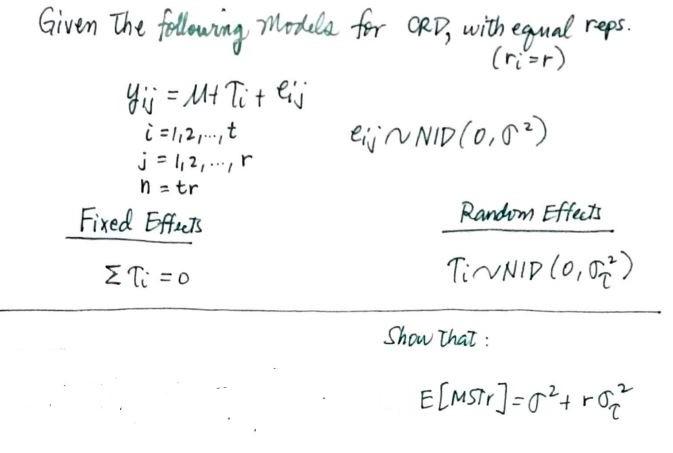 Given The following Models for CRD, with equal reps.
(ri=r)
yij = M+ Ti + eij
i = 1,2,...,t
eij ~ NID (0, σ²)
j = 1,2,..., r
n = tr
Fixed Effects
Random Effects
Σ Ti = 0
Ti ~ NID (0, στ²)
Show That :
E[MSTr] = σ² + r στ²